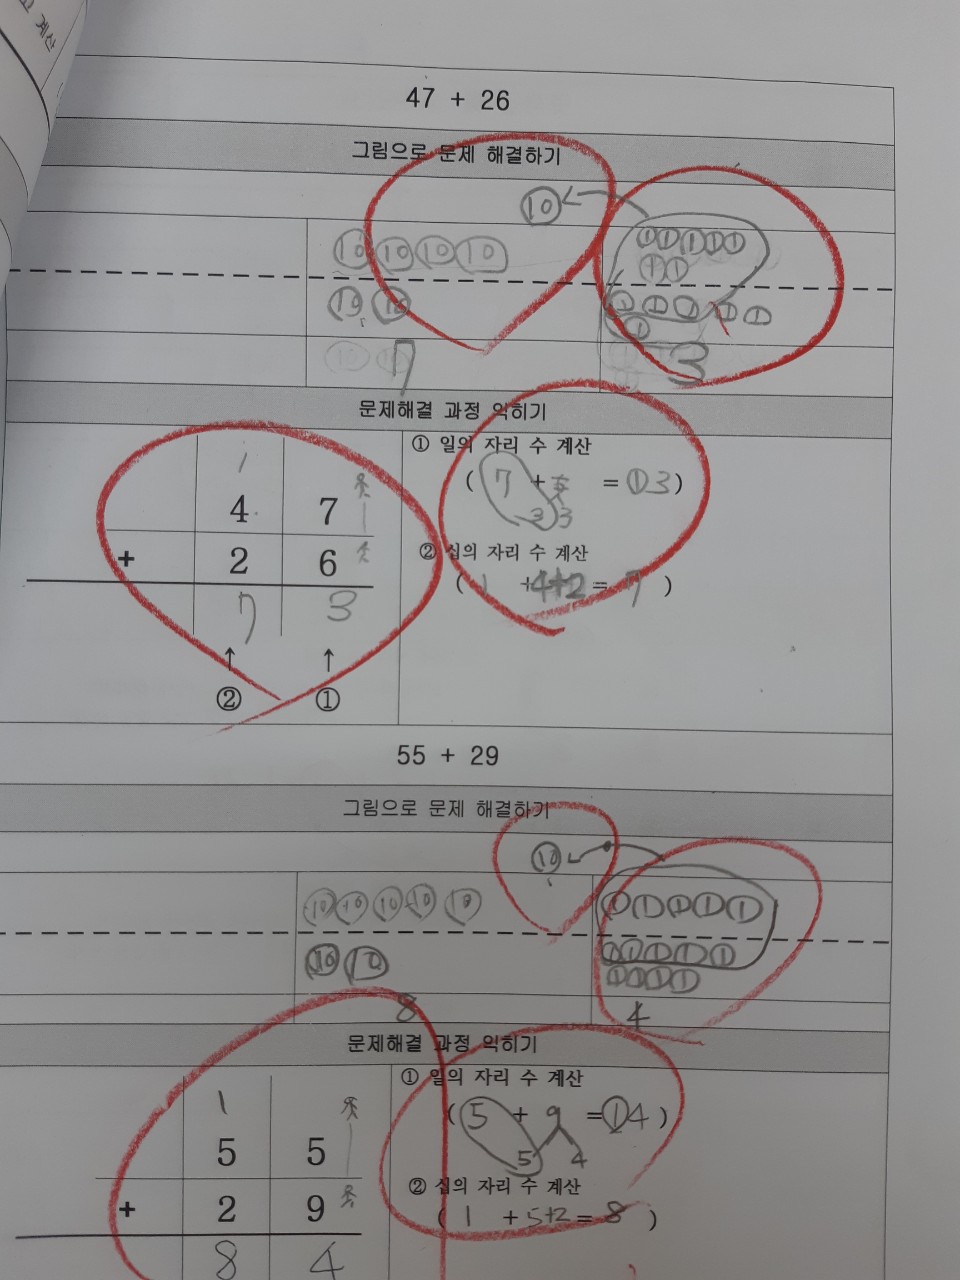 고 계산
47 + 26
그림으로 문제 해결하기
10
10 10 10 10
1 1 1 1 1
1 1
10 10
1 1 1 1 1
1
7
3
문제해결 과정 익히기
① 일의 자리 수 계산
1
( 7 + = ①3 )
4 7
3 3
+ 2 6
② 십의 자리 수 계산
( 1 + 4+2 = 7 )
7 3
↑ ↑
② ①
55 + 29
그림으로 문제 해결하기
10
10 10 10 10 10
1 1 1 1 1
1 1 1 1 1
10 10
1 1 1 1
8
4
문제해결 과정 익히기
① 일의 자리 수 계산
1
( 5 + 9 = ①4 )
5 5
5 4
② 십의 자리 수 계산
+ 2 9
( 1 + 5+2 = 8 )
8 4